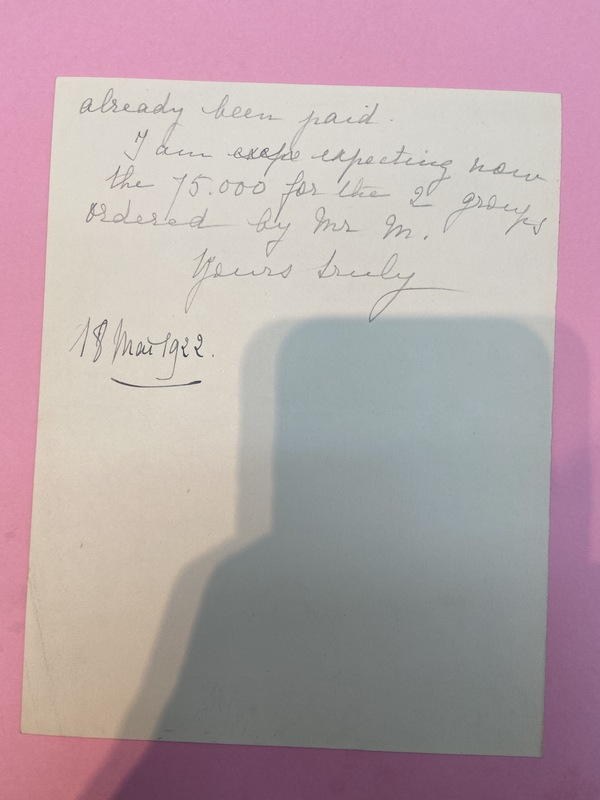 already been paid.
I am excpe expecting now
the 75.000 for the 2 groups
ordered by Mr M.
Yours truly
18 Mai 1922.